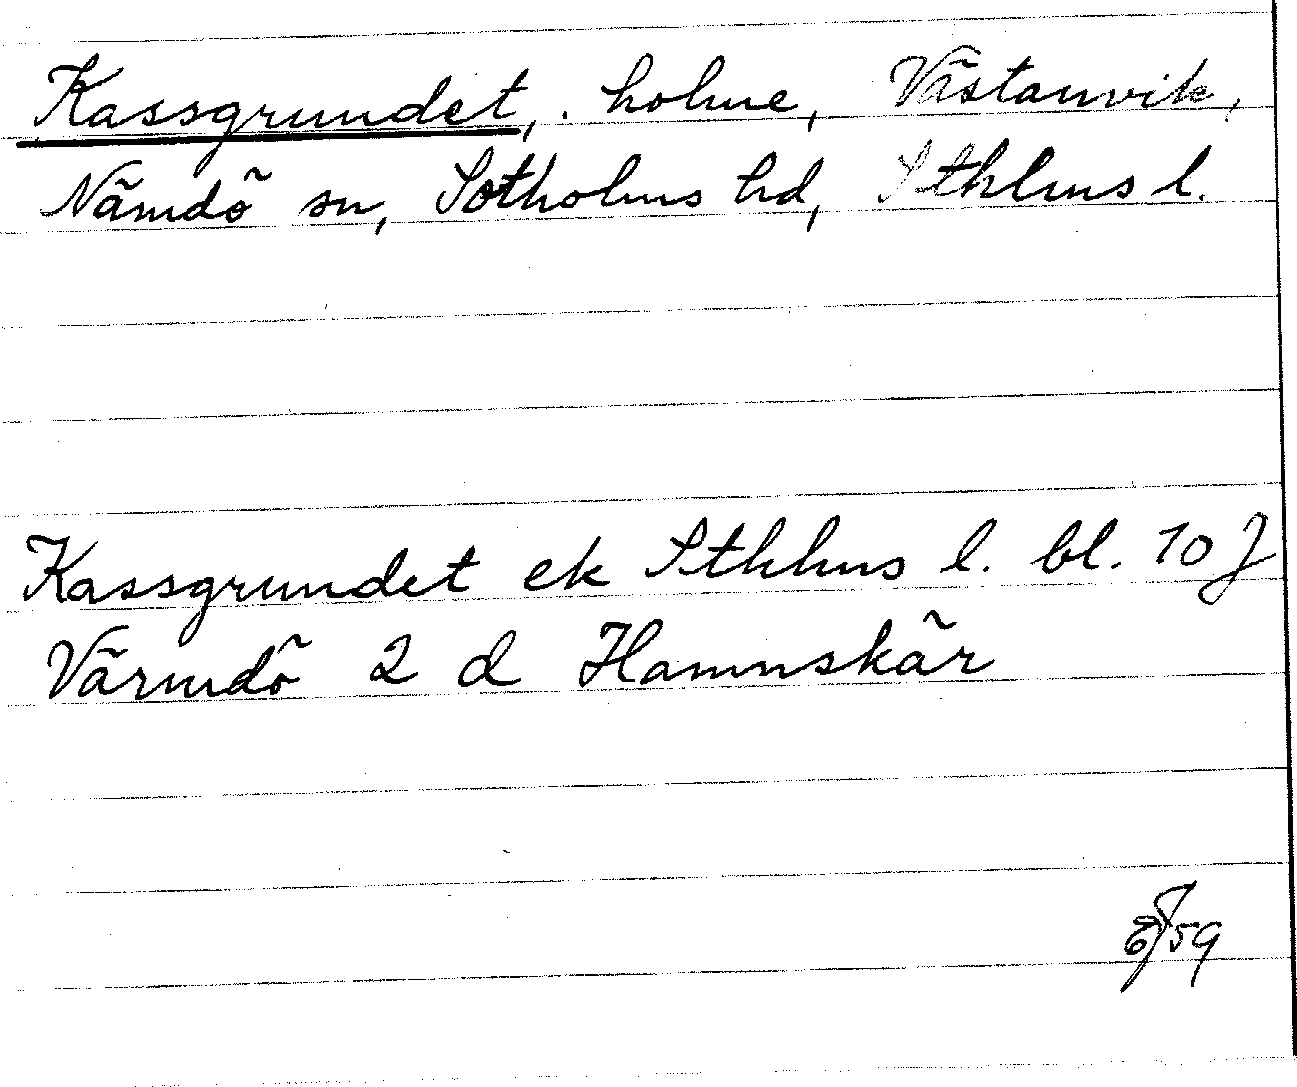 Kassgrundet, holme, Västanvik,
Nämdö sn, Sotholms hd, Sthlms l.
Kassgrundet ek Sthlms l. bl. 10 J
Värmdö 2 d Hamnskär
59